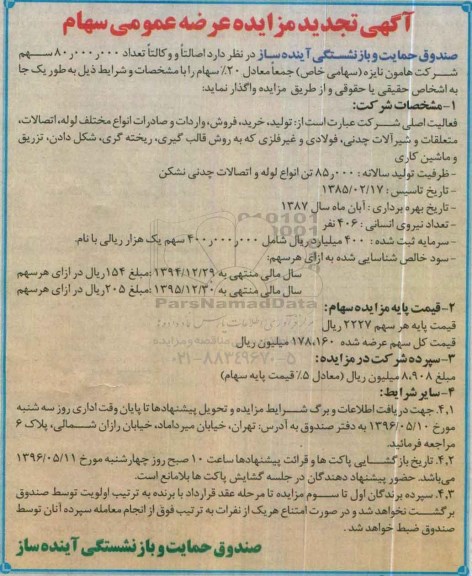 آگهی تجدید مزایده عرضه عمومی سهام
صندوق حمایت و بازنشستگی آینده ساز در نظر دارد اصالتاً و وکالتاً تعداد ۸۰ر۰۰۰ر۰۰۰ سهم
شرکت هامون نایزه (سهامی خاص) جمعاً معادل ۲۰٪ سهام را با مشخصات و شرایط ذیل به طور یک جا
به اشخاص حقیقی یا حقوقی و از طریق مزایده واگذار نماید:
۱-مشخصات شرکت:
فعالیت اصلی شرکت عبارت است از: تولید، خرید، فروش، واردات و صادرات انواع مختلف لوله، اتصالات،
متعلقات و شیرآلات چدنی، فولادی و غیرفلزی که به روش قالب گیری، ریخته گری، شکل دادن، تزریق
و ماشین کاری
- ظرفیت تولید سالانه : ۸۵ر۰۰۰ تن انواع لوله و اتصالات چدنی نشکن
- تاریخ تاسیس : ۱۳۸۵/۰۲/۱۷
- تاریخ بهره برداری : آبان ماه سال ۱۳۸۷
- تعداد نیروی انسانی : ۴۰۶ نفر
- سرمایه ثبت شده : ۴۰۰ میلیارد ریال شامل ۴۰۰ر۰۰۰ر۰۰۰ سهم یک هزار ریالی با نام.
- سود خالص شناسایی شده به ازای هر سهم:
سال مالی منتهی به ۱۳۹۴/۱۲/۲۹ :مبلغ ۱۵۴ ریال در ازای هر سهم
سال مالی منتهی به ۱۳۹۵/۱۲/۳۰ :مبلغ ۲۰۵ ریال در ازای هر سهم
۲-قیمت پایه مزایده سهام:
قیمت پایه هر سهم ۲۲۲۷ ریال
قیمت کل سهم عرضه شده ۱۷۸،۱۶۰ میلیون ریال
۳-سپرده شرکت در مزایده:
مبلغ ۸،۹۰۸ میلیون ریال (معادل ۵٪ قیمت پایه سهام)
۴-سایر شرایط:
۴.۱. جهت دریافت اطلاعات و برگ شرایط مزایده و تحویل پیشنهادها تا پایان وقت اداری روز سه شنبه
مورخ ۱۳۹۶/۰۵/۱۰ به دفتر صندوق به آدرس: تهران، خیابان میرداماد، خیابان رازان شمالی، پلاک ۶
مراجعه فرمائید.
۴.۲. تاریخ بازگشایی پاکت ها و قرائت پیشنهادها ساعت ۱۰ صبح روز چهارشنبه مورخ ۱۳۹۶/۰۵/۱۱
می‌باشد. حضور پیشنهاد دهندگان در جلسه گشایش پاکت ها بلامانع است.
۴.۳. سپرده برندگان اول تا سوم مزایده تا مرحله عقد قرارداد با برنده به ترتیب اولویت توسط صندوق
برگشت نخواهد شد و در صورت امتناع هر یک از نفرات به ترتیب فوق از انجام معامله سپرده آنان توسط
صندوق ضبط خواهد شد.
صندوق حمایت و بازنشستگی آینده ساز
ParsNamadData
۰۲۱-۸۸۳۴۹۶۷۰-۵